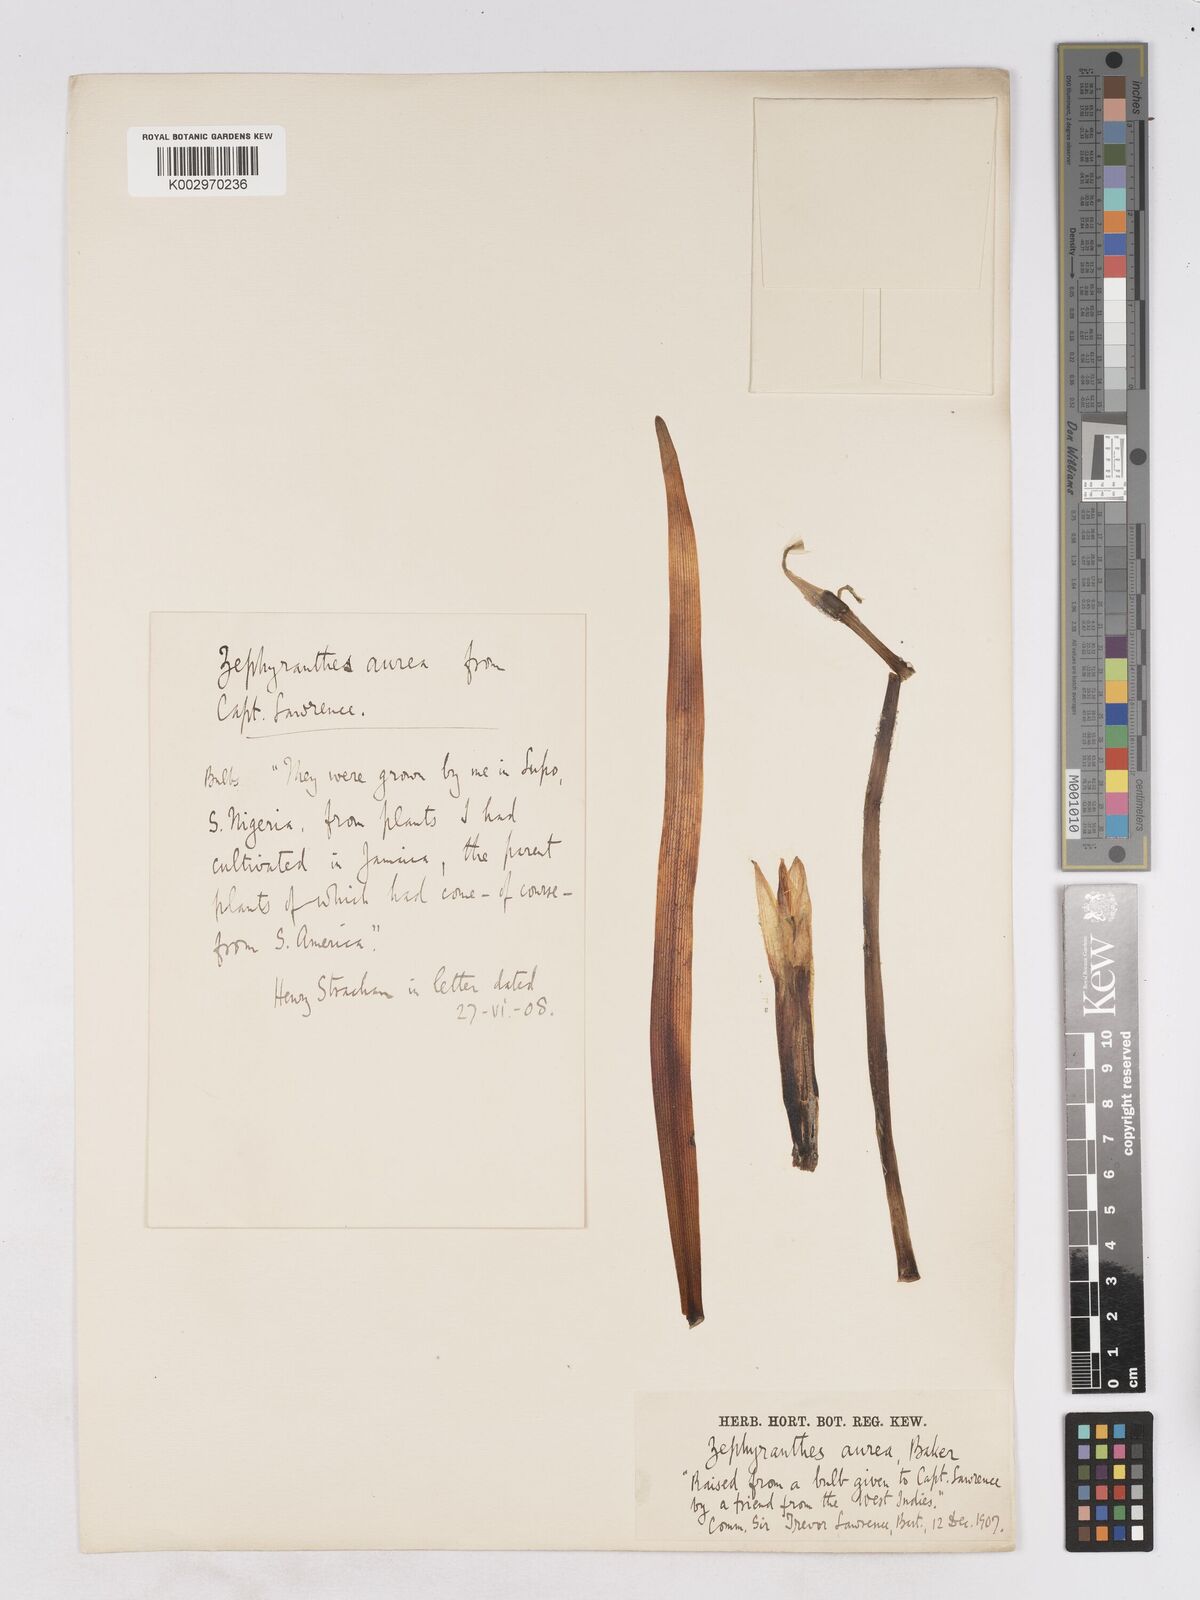 ROYAL BOTANIC GARDENS KEW
K002970236
Zephyranthes aurea from
Capt. Lawrence.
Bulbs "They were grown by me in Lupo,
S. Nigeria, from plants I had
cultivated in Jamaica, the parent
plants of which had come - of course -
from S. America".
Henry Strachan in letter dated
27-VI.-08.
HERB. HORT. BOT. REG. KEW.
Zephyranthes aurea, Baker
"Raised from a bulb given to Capt. Lawrence
by a friend from the West Indies."
Comm. Sir Trevor Lawrence, Bart., 12 Dec. 1907.
inches
D50 Illuminant, 2 degree observer
Density
Don Williams
All values are batch averages
centimeters
M001010
Kew
Royal Botanic Gardens
copyright reserved
0 1 2 3 4 5 6 7 8 9 10
cm